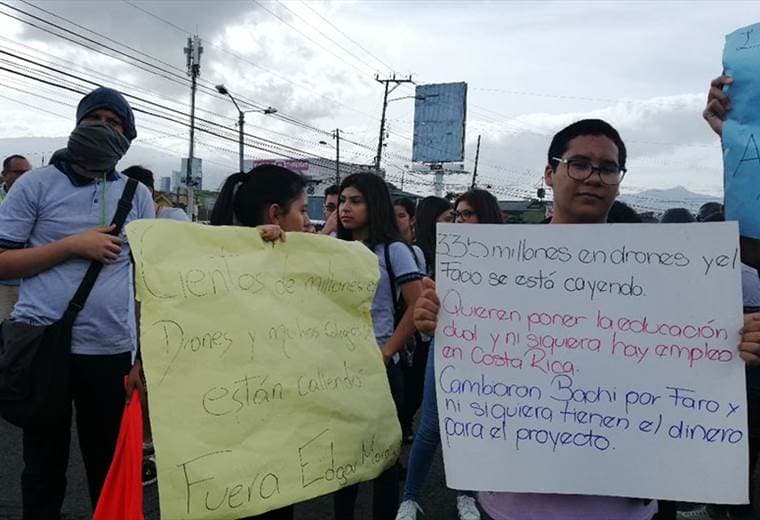 Cientos de millones en
Drones y muchos colegios
están callendo
Fuera Edgar Mora
335 millones en drones y el
Facio se está cayendo.
Quieren poner la educación
dual y ni siquiera hay empleo
en Costa Rica.
Cambiaron Bachi por Faro y
ni siquiera tienen el dinero
para el proyecto.